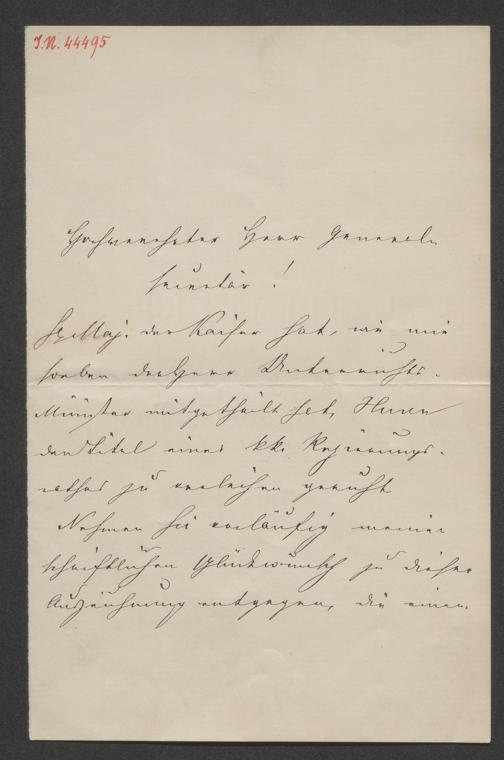 J.N. 44495
Hochverehrter Herr General-
secretär!
Se. Maj. der Kaiser hat, wie mir
soeben der Herr Unterrichts-
Minister mitgetheilt hat, Ihnen
den Titel eines kk. Regierungs-
rathes zu verleihen geruht.
Nehmen Sie vorläufig meinen
schriftlichen Glückwunsch zu dieser
Auszeichnung entgegen, die einen